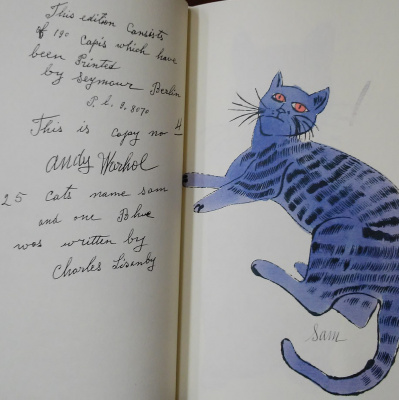 This edition Consists
of 190 Capis which have
been Printed
by Seymour Berlin
P. l. 9. 8070
This is copy no 4
Andy Warhol
25 cats name sam
and one Blue
was written by
Charles Lisanby
Sam